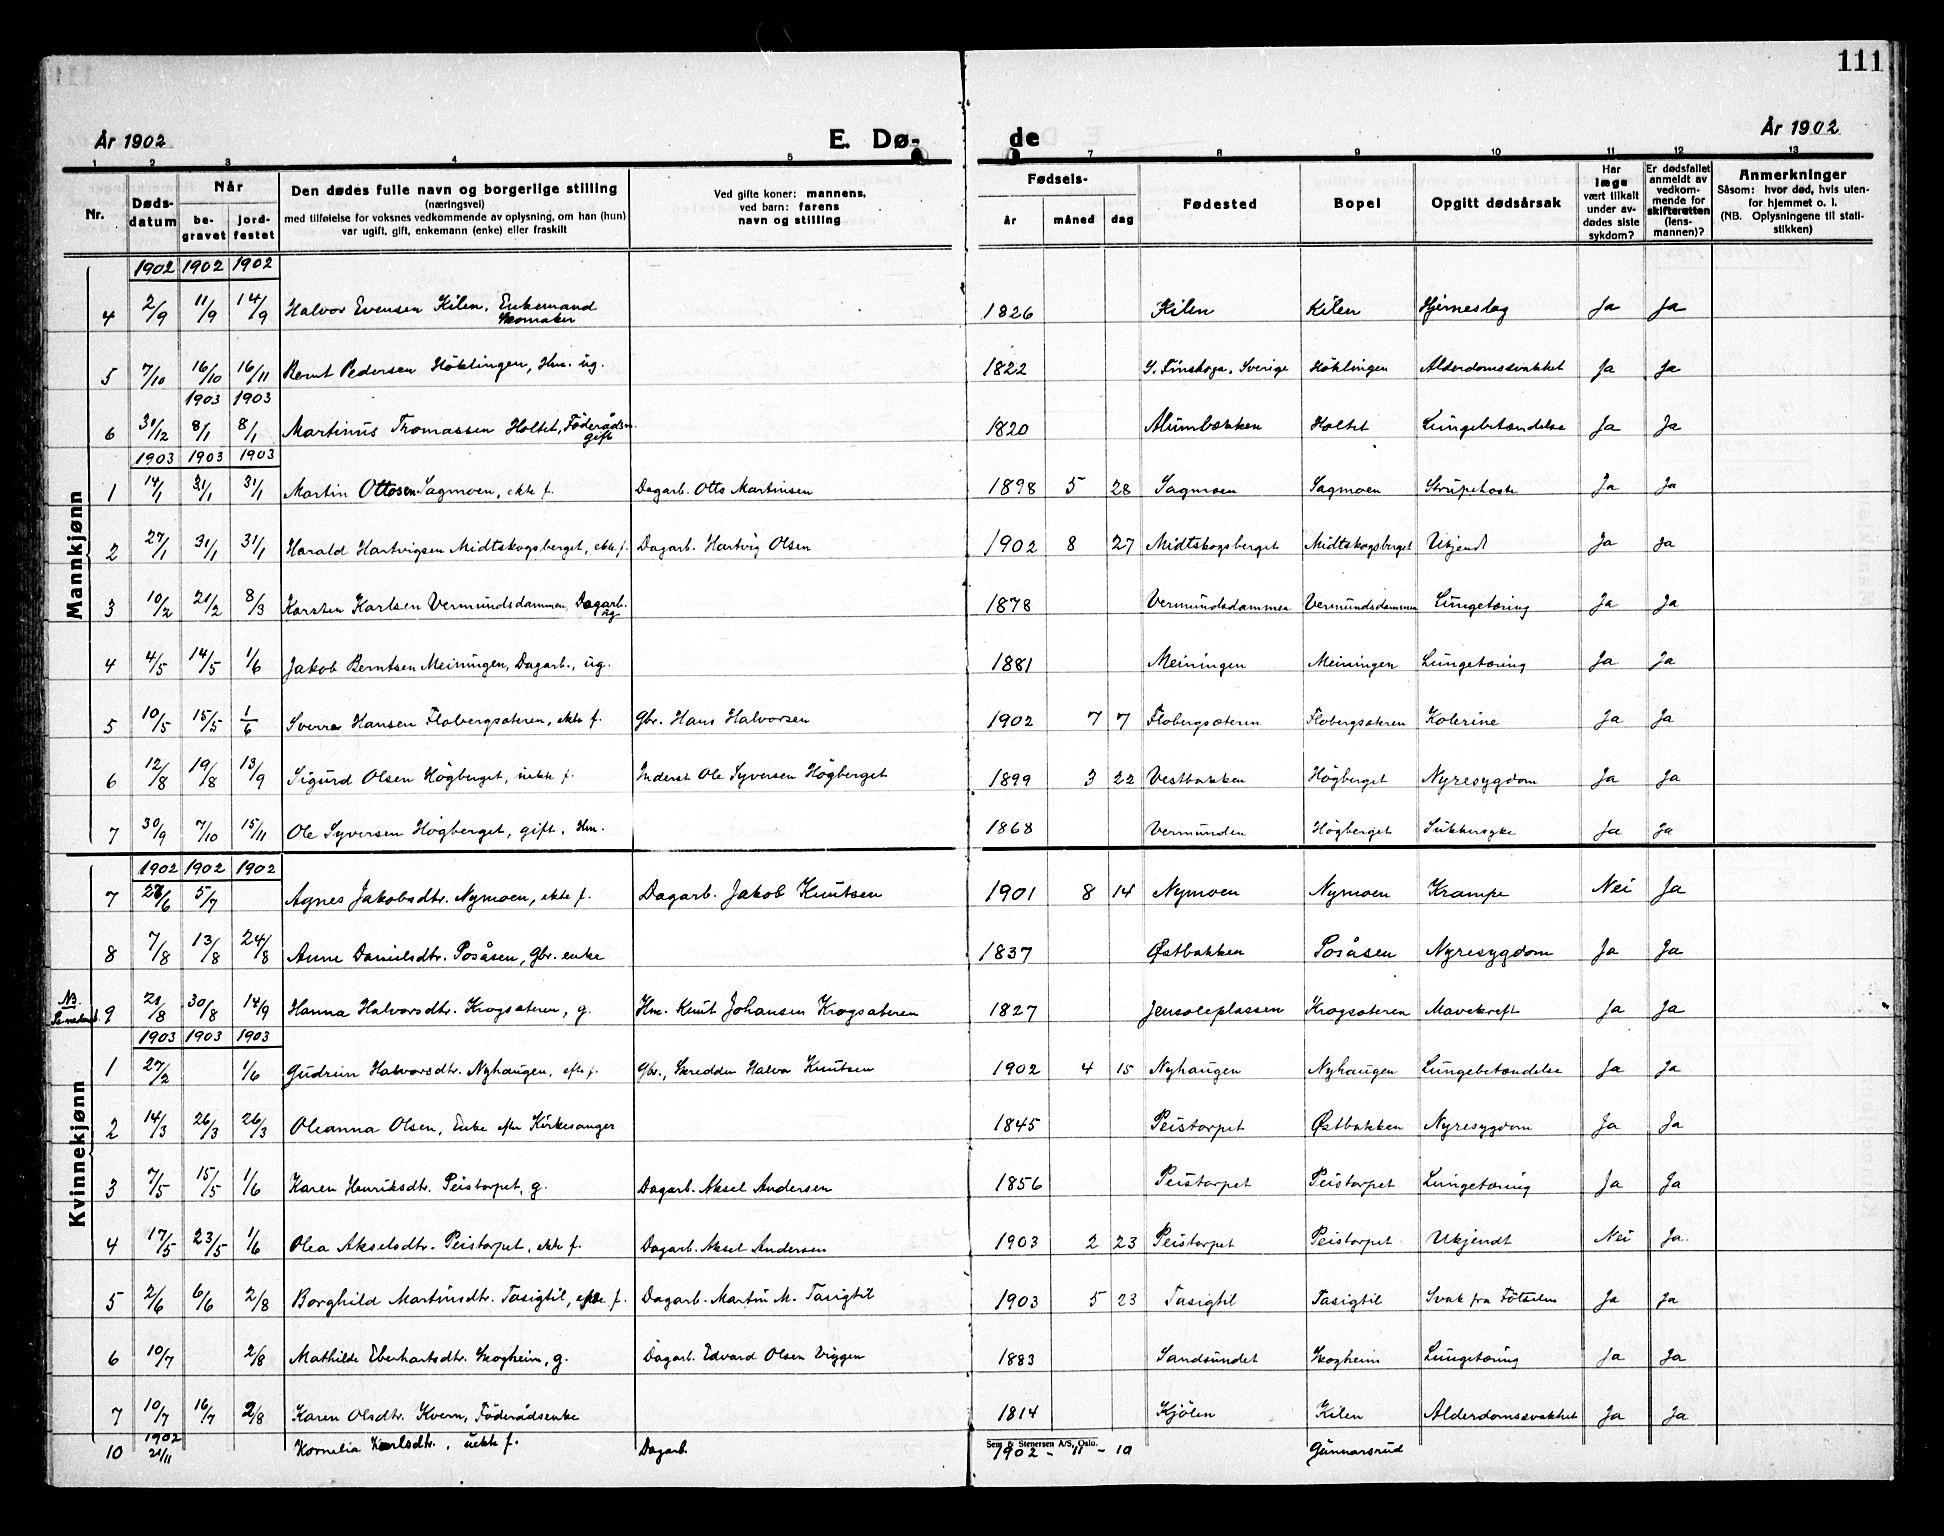 111
År 1902 E. Dø- de År 1902
1 2 3 4 5 7 8 9 10 11 12 13
Nr. Døds-datum Når be-gravet jord-festet Den dødes fulle navn og borgerlige stilling (næringsvei) med tilføielse for voksnes vedkommende av oplysning, om han (hun) var ugift, gift, enkemann (enke) eller fraskilt Ved gifte koner: mannens, ved barn: farens navn og stilling Fødsels- år måned dag Fødested Bopel Opgitt dødsårsak Har læge vært tilkalt under av-dødes siste sykdom? Er dødsfallet anmeldt av vedkom-mende for skifteretten (lens-mannen)? Anmerkninger Såsom: hvor død, hvis uten-for hjemmet o. l. (NB. Oplysningene til stati-stikken)
Mannkjønn
1902 1902 1902
4 2/9 11/9 14/9 Halvor Evensen Kilen, Enkemand Skomaker 1826 Kilen Kilen Hjerneslag Ja Ja
5 7/10 16/10 16/11 Bernt Pedersen Höklingen, Hm. ug. 1822 S. Finskoga, Sverige Höklingen Alderdomssvakket Ja Ja
1903 1903
6 31/12 8/1 8/1 Martinus Tromassen Holtet, Föderådsm. gift 1820 Alumbækken Holtet Lungebetændelse Ja Ja
1903 1903 1903
1 14/1 31/1 31/1 Martin Ottosen Sagmoen, ekte f. Dagarb. Otto Martinsen 1898 5 28 Sagmoen Sagmoen Strupehoste Ja Ja
2 27/1 31/1 31/1 Harald Hartvigsen Midtskogsberget, ekte f. Dagarb. Hartvig Olsen 1902 8 27 Midtskogsberget Midtskogsberget Ukjendt Ja Ja
3 10/2 21/2 8/3 Karsten Karlsen Vermundsdammen, Dagarb. ug 1878 Vermundsdammen Vermundsdammen Lungetæring Ja Ja
4 4/5 14/5 1/6 Jakob Berntsen Meiningen, Dagarb., ug. 1881 Meiningen Meiningen Lungetæring Ja Ja
5 10/5 15/5 1/6 Sverre Hansen Flobergsæteren, ekte f. Gbr. Hans Halvorsen 1902 7 7 Flobergsæteren Flobergsæteren Kolerine Ja Ja
6 12/8 19/8 13/9 Sigurd Olsen Högberget, uekte f. Inderst Ole Syversen Högberget 1899 3 22 Vestbakken Högberget Nyresygdom Ja Ja
7 30/9 7/10 15/11 Ole Syversen Högberget, gift, Hm. 1868 Vermunden Högberget Sukkersyke Ja Ja
Kvinnekjønn
1902 1902 1902
7 /6 5/7 Agnes Jakobsdtr. Nymoen, ekte f. Dagarb. Jakob Knutsen 1901 8 14 Nymoen Nymoen Krampe Nei Ja
8 7/8 13/8 24/8 Anne Danielsdtr. Posåsen, Gbr. enke 1837 Østbakken Posåsen Nyresygdom Ja Ja
NB. 9 21/8 30/8 14/9 Hanna Halvorsdtr. Krogsæteren, g. Hm. Knut Johansen Krogsæteren 1827 Jensoleplassen Krogsæteren Mavekreft Ja Ja
1903 1903 1903
1 27/2 1/6 Gudrun Halvorsdtr. Nyhaugen, efte f. Gbr., Skredder Halvor Knutsen 1902 4 15 Nyhaugen Nyhaugen Lungebetændelse Ja Ja
2 14/3 26/3 26/3 Oleanna Olsen, Enke efter Kirkesanger 1845 Peistorpet Østbakken Nyresygdom Ja Ja
3 7/5 15/5 1/6 Karen Henriksdtr. Peistorpet, g. Dagarb. Aksel Andersen 1856 Peistorpet Peistorpet Lungetæring Ja Ja
4 17/5 23/5 1/6 Olea Akselsdtr. Peistorpet, ekte f. Dagarb. Aksel Andersen 1903 2 23 Peistorpet Peistorpet Ukjendt Nei Ja.
5 2/6 6/6 2/8 Borghild Martinsdtr. Tasigtil, ekte f. Dagarb. Martin M. Tasigtil 1903 5 23 Tasigtil Tasigtil Svak fra Fötselen Ja Ja
6 10/7 2/8 Mathilde Eberhartsdtr. Skogheim, g. Dagarb. Edvard Olsen Viggen 1883 Sandsundet Skogheim Lungetæring Ja Ja
7 10/7 16/7 2/8 Karen Olsdtr. Kvern, Föderådsenke 1814 Kjölen Kilen Alderdomssvakhet Ja Ja
1902
Sem & Stenersen A/S, Oslo.
10 21/11 Kornelia Karlsdtr., uekte f. Dagarb. 1902 - 11 - 10 Gunnarsrud